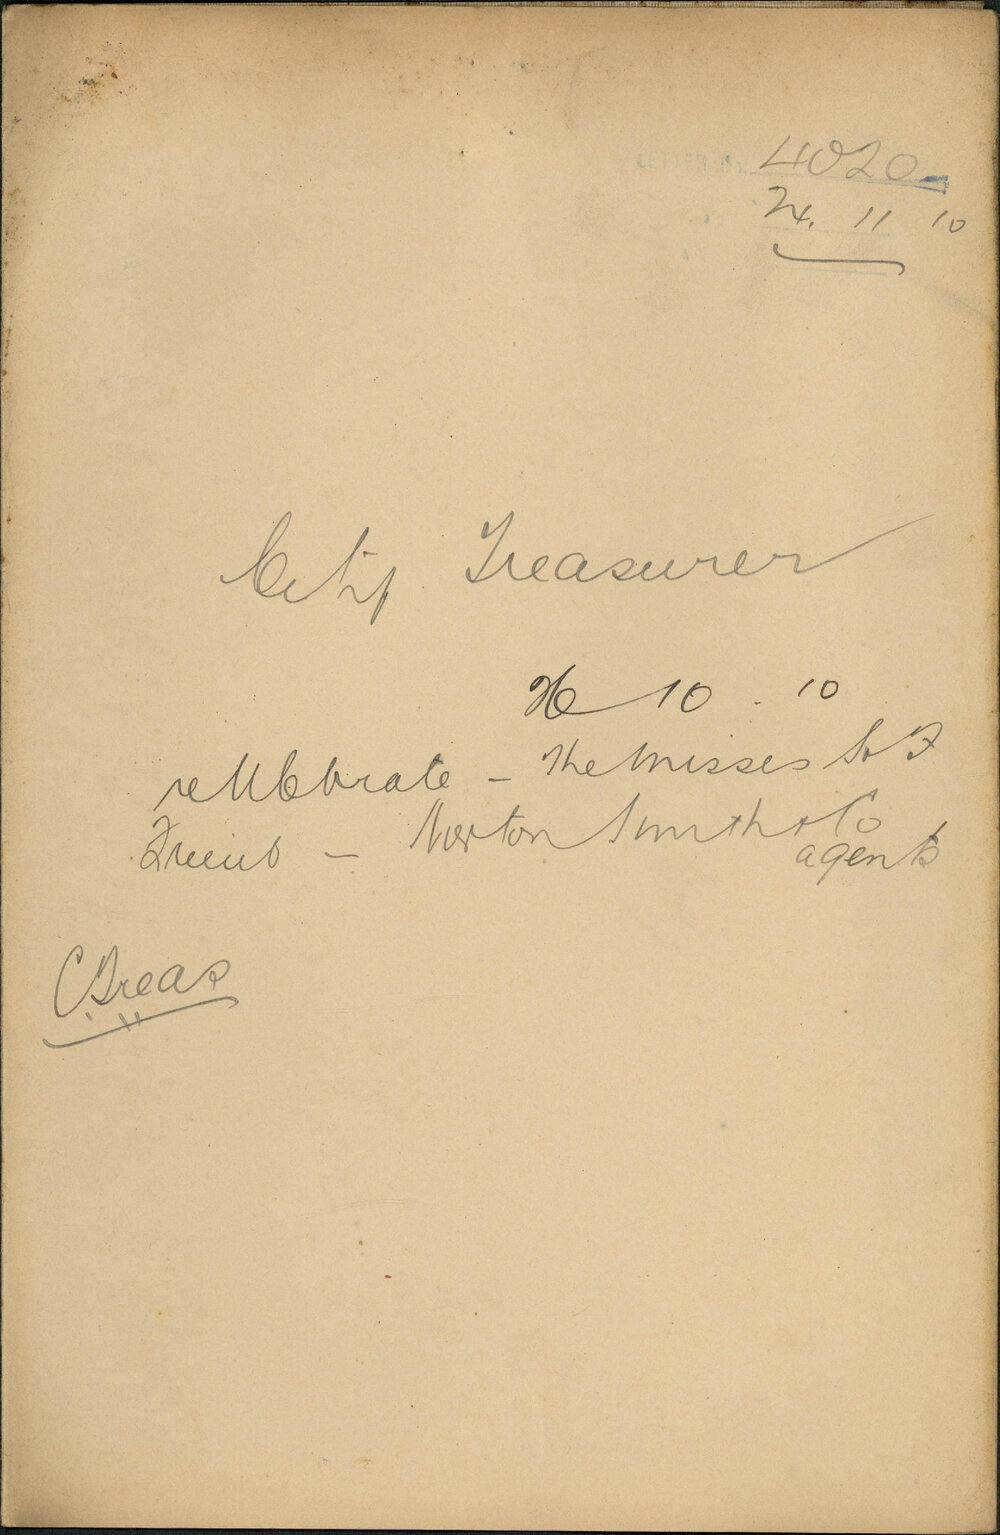 LETTER No. 4020
24. 11 10
City Treasurer
26 10 . 10
re Rebate - The Misses S & F
Friend - Norton Smith & Co
agents
C Treas